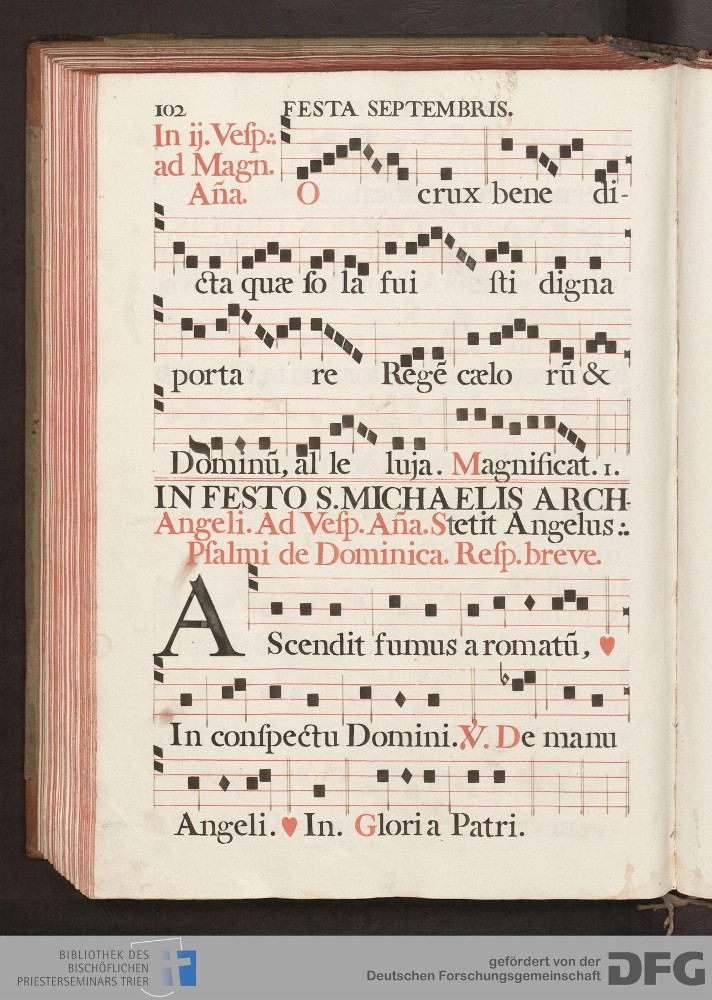 102 FESTA SEPTEMBRIS.
In ij. Veſp:.
ad Magn.
Aña.
O crux bene di-
cta quæ ſo la fui ſti digna
porta re Regē cælo rū &
Dominū, al le luja. Magnificat. 1.
IN FESTO S. MICHAELIS ARCH-
Angeli. Ad Veſp. Aña. Stetit Angelus:.
Pſalmi de Dominica. Reſp. breve.
AScendit fumus aromatū, ♥
In conſpectu Domini. ℣. De manu
Angeli. ♥ In. Gloria Patri.
BIBLIOTHEK DES
BISCHÖFLICHEN
PRIESTERSEMINARS TRIER
gefördert von der
Deutschen Forschungsgemeinschaft DFG